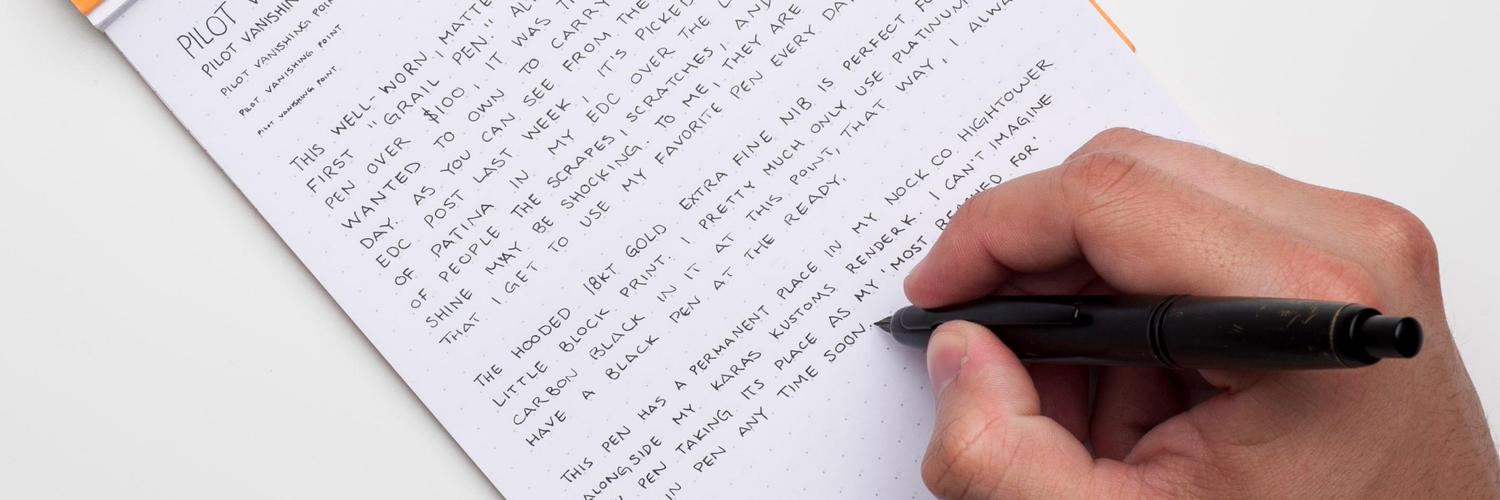 PILOT
PILOT VANISHING
PILOT VANISHING POIN
PILOT VANISHING POINT
PILOT VANISHING POINT
THIS WELL-WORN, MATTE
FIRST "GRAIL PEN." AL
PEN OVER $100, IT WAS
WANTED TO OWN TO CARRY
DAY. AS YOU CAN SEE FROM THE
EDC POST LAST WEEK, IT'S PICKED
OF PATINA IN MY EDC OVER THE L
OF PEOPLE THE SCRAPES, SCRATCHES, AND
SHINE MAY BE SHOCKING. TO ME, THEY ARE
THAT I GET TO USE MY FAVORITE PEN EVERY DAY
THE HOODED 18KT GOLD EXTRA FINE NIB IS PERFECT FO
LITTLE BLOCK PRINT. I PRETTY MUCH ONLY USE PLATINUM
CARBON BLACK IN IT AT THIS POINT, THAT WAY, I ALWA
HAVE A BLACK PEN AT THE READY.
THIS PEN HAS A PERMANENT PLACE IN MY NOCK CO HIGHTOWER
ALONGSIDE MY KARAS KUSTOMS RENDERK. I CAN'T IMAGINE
PEN TAKING ITS PLACE AS MY 'MOST REACHED FOR'
IN PEN ANY TIME SOON.